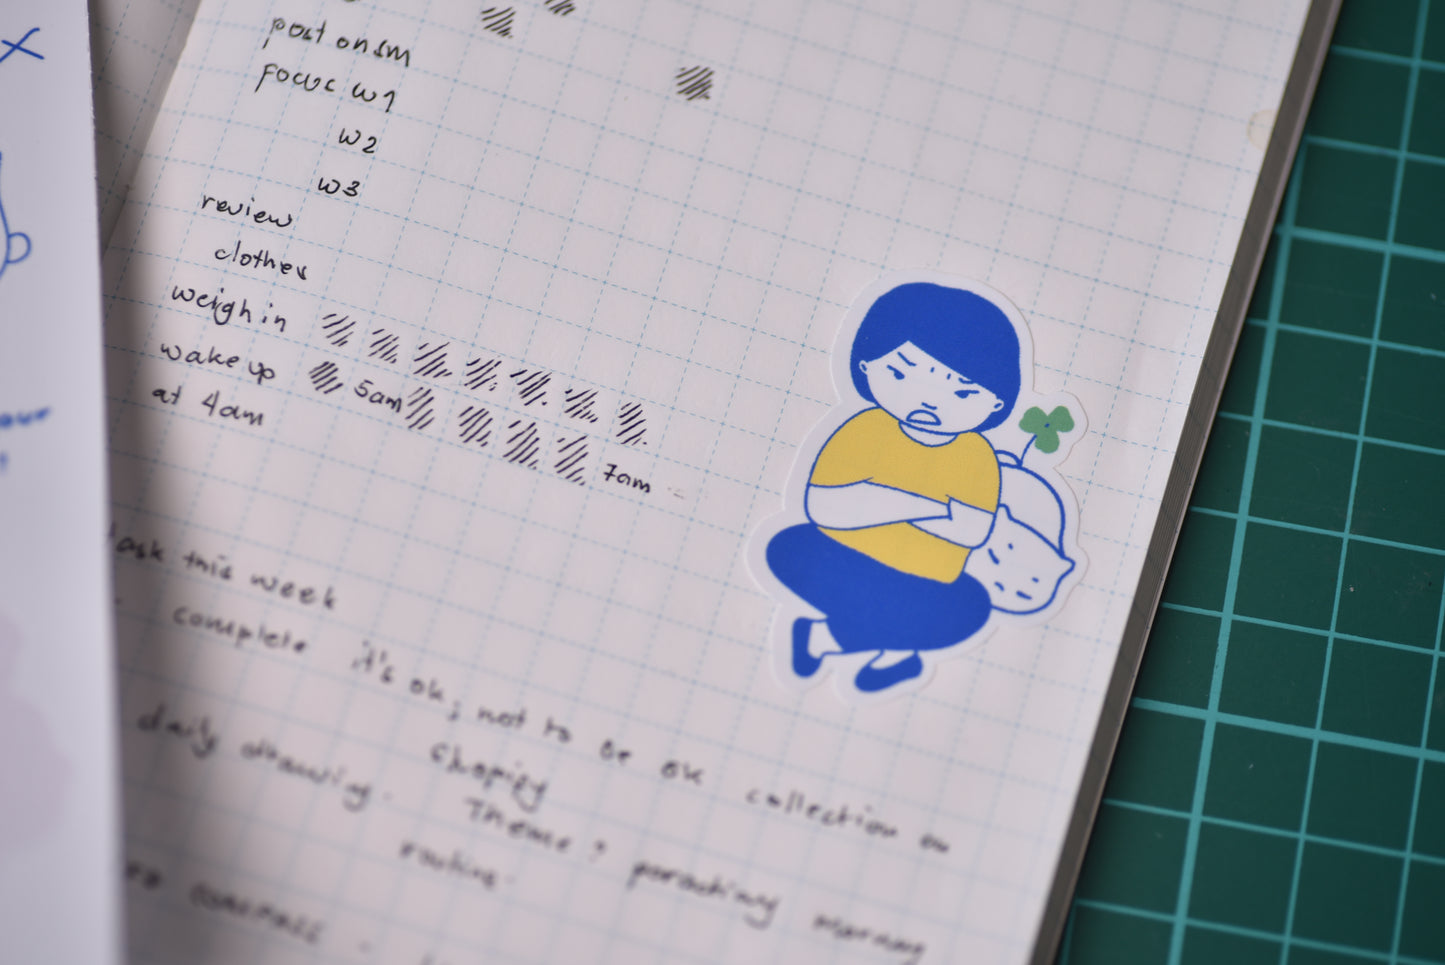 post on sm
focus w1
w2
w3
review
clothes
weigh in
wake up 5am 7am
at 4am
task this week
complete it's ok, not to be ok collection on
Shopify
daily drawing. Theme? parenting morning
routine.